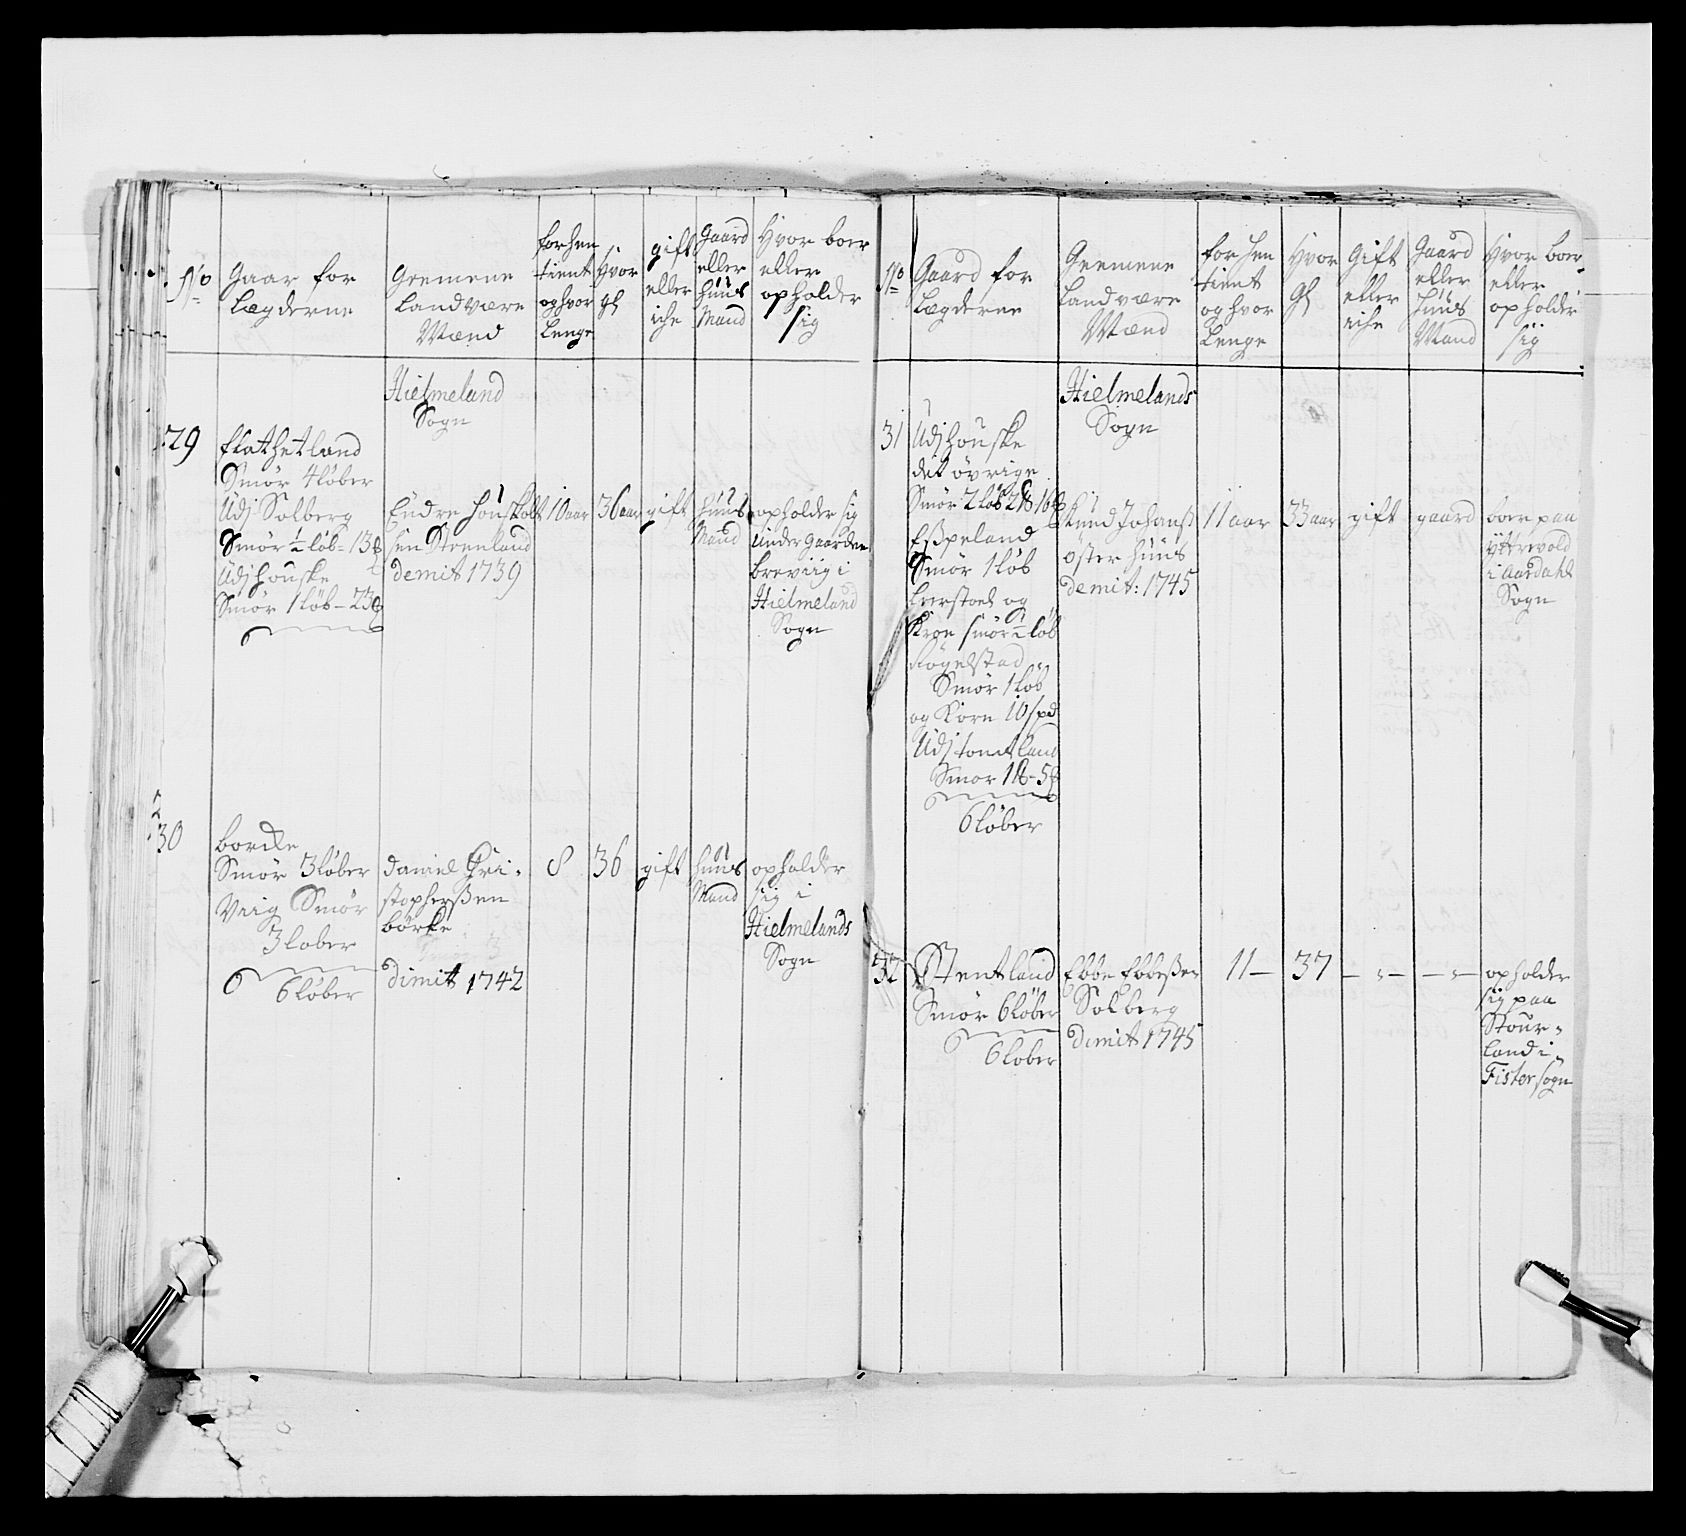 No
Gaar for
Lægderne
Geemene
Landwære
Mænd
forhen
tient
og hvor
Lenge
Hvor
gl
gift
eller
iche
Gaard
eller
huus
Mand
Hvor boer
eller
opholder
sig
Hielmeland
Sogn
29
Flathetland
Smör 4 löber
Udj Solberg
Smör ½ löb - 13
Udj houske
Smör 1 löb - 23
Endre houskolt
sen Steenland
demit 1739
10 aar
36 aar
gift
huus
Mand
opholder sig
under gaarden
breviig i
Hielmeland
Sogn
30
borcke
Smör 3 löber
Viig Smör
3 lober
6 löber
Daniel Chri-
stopherßen
börke
dimit 1742
8
36
gift
huus
Mand
opholder
sig i
Hielmelands
Sogn
No
Gaard for
Lægderne
Geemene
Landvære
Mænd
for hen
tient
og hvor
Lenge
Hvor
gl
Gift
eller
iche
Gaard
eller
huus
Mand
Hvor boer
eller
opholder
sig
Hielmelands
Sogn
31
Udj houske
det övrige
Smör 2 löb
Eßpeland
Smör 1 löb
Leerstoel og
Kroe smör ½ löb
Smör 1 löb
og Korn 10 spd
Udj tomtland
Smör
6 löber
Knud Johanß
österhuus
demit: 1745
11 aar
33 aar
gift
gaard
boer paa
Yttrevold
i Aardahl
Sogn
32
Stentland
Smör 6 löber
6 lober
Ebbe Ebbeßen
Solberg
dimit 1745
11 —
37
— „ —
— „ —
opholder
sig paa
Stour-
land i
Fister sogn